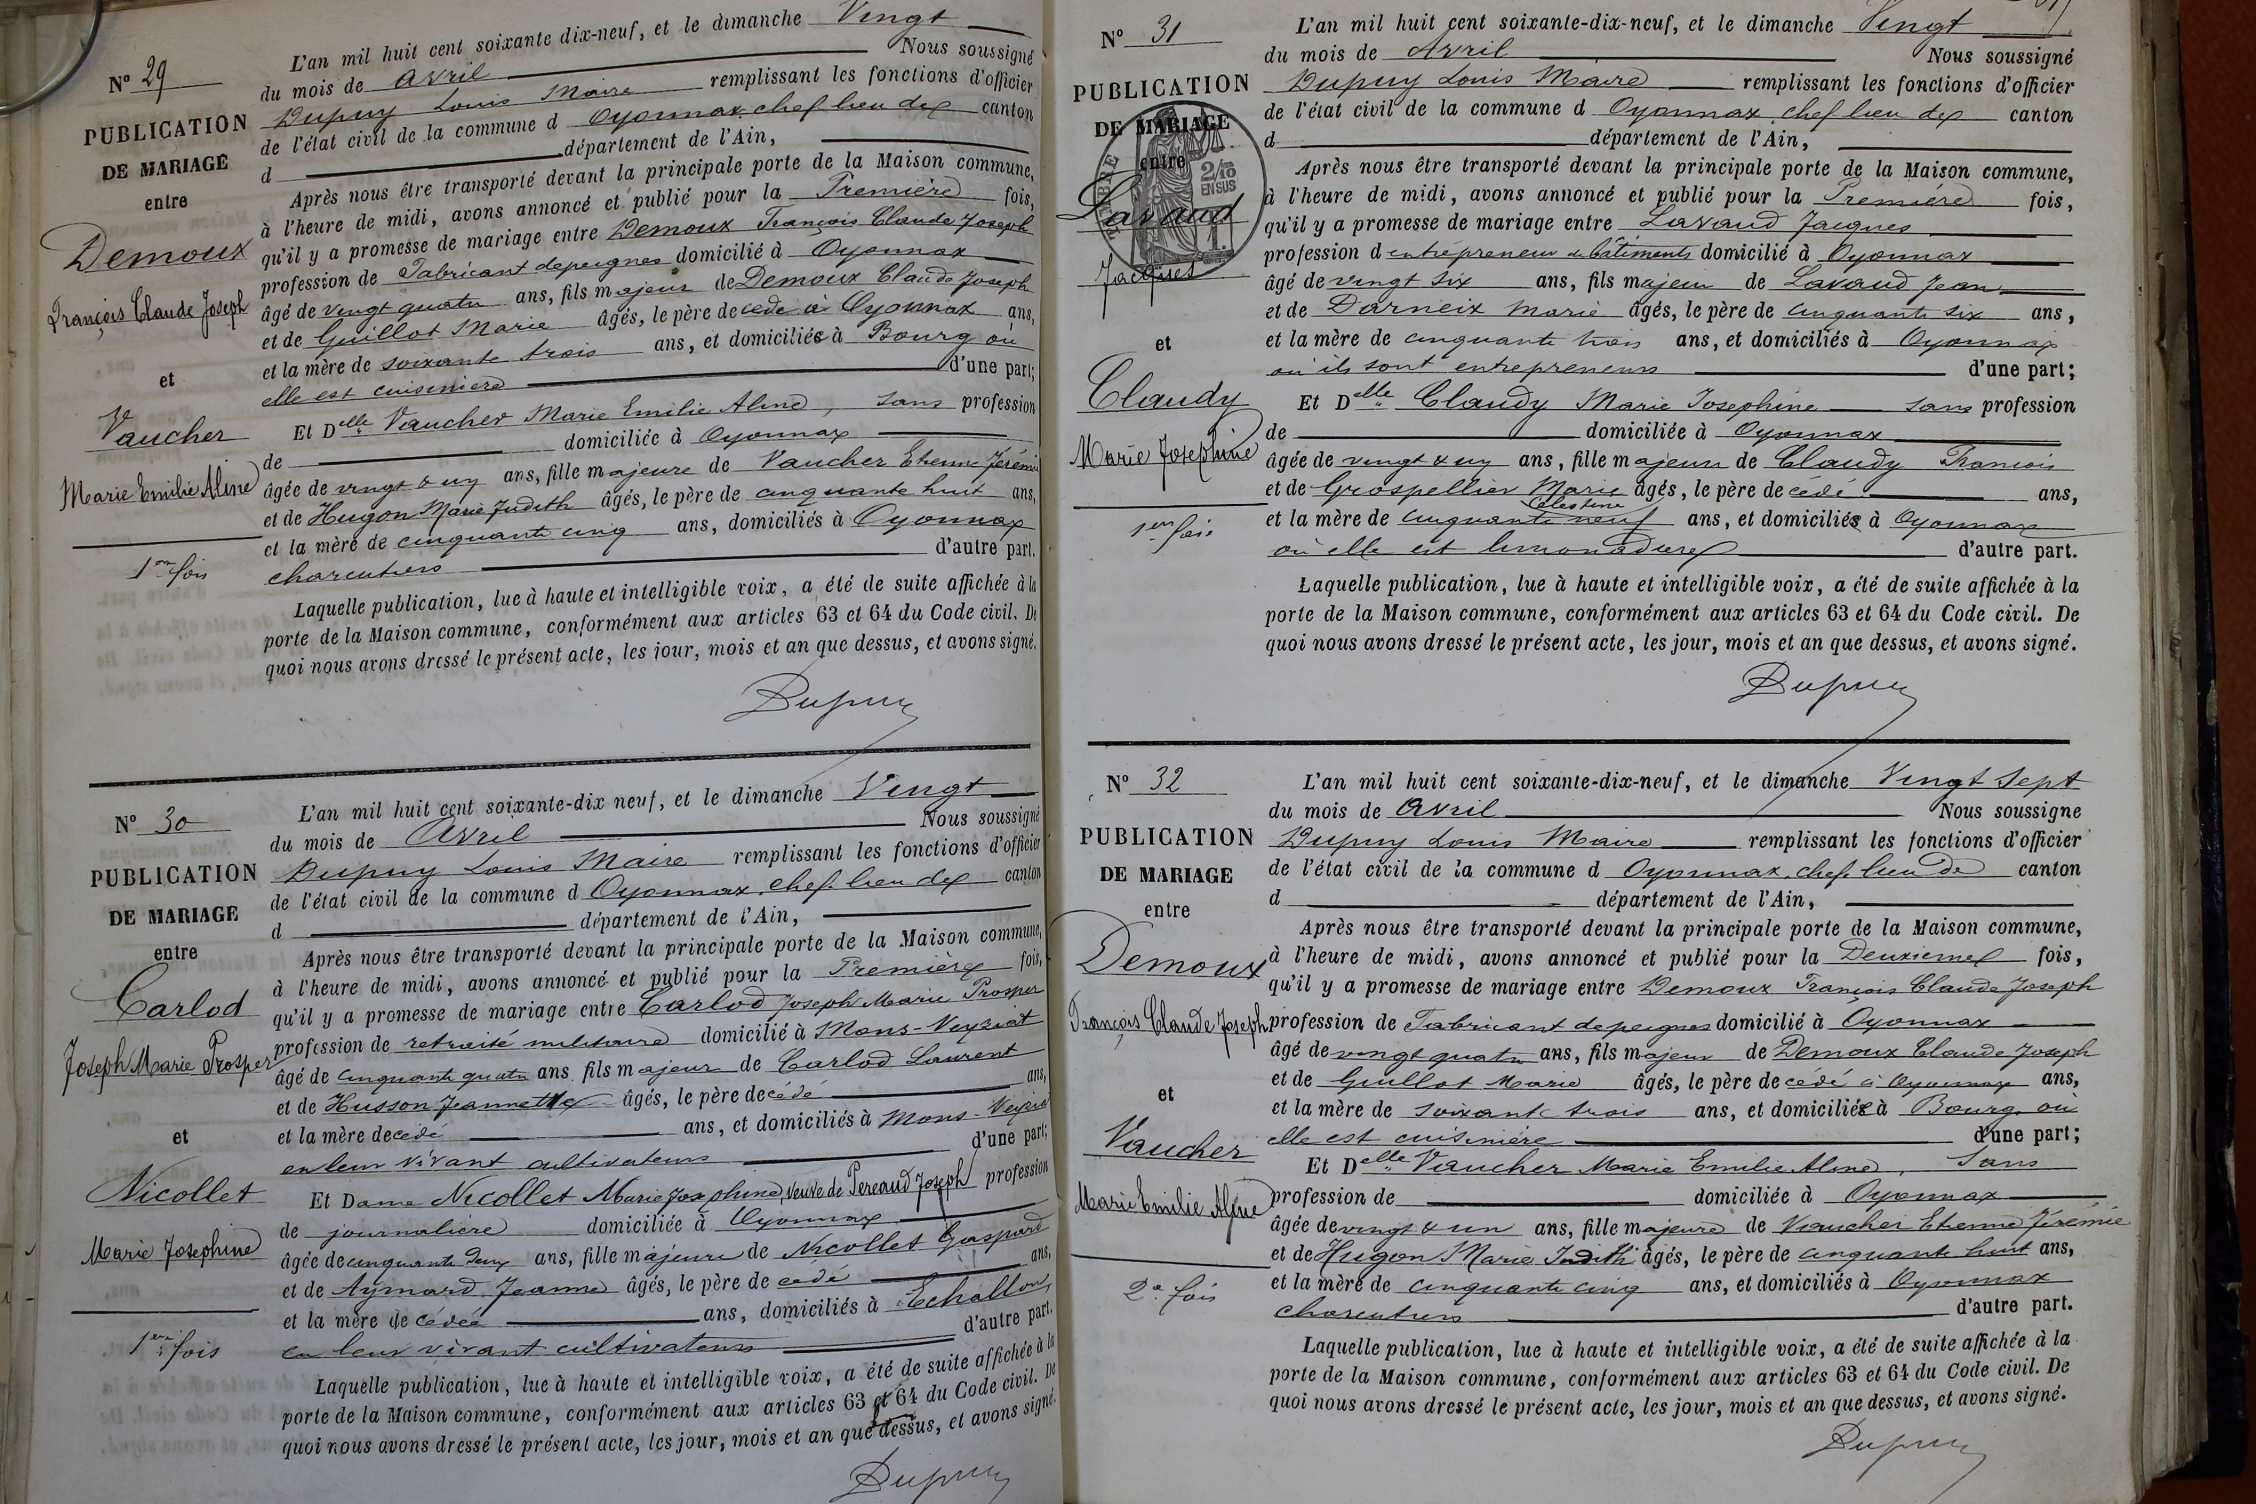 N° 29
PUBLICATION
DE MARIAGE
entre
Demoux
François Claude Joseph
et
Vaucher
Marie Emilie Aline
1ere fois
L'an mil huit cent soixante dix-neuf, et le dimanche Vingt
du mois de Avril Nous soussigné
Dupuy Louis Maire remplissant les fonctions d'officier
de l'état civil de la commune d Oyonnax, chef lieu de canton
d département de l'Ain,
Après nous être transporté devant la principale porte de la Maison commune,
à l'heure de midi, avons annoncé et publié pour la Première fois,
qu'il y a promesse de mariage entre Demoux François Claude Joseph
profession de Fabricant de peignes domicilié à Oyonnax
âgé de vingt quatre ans, fils majeur de Demoux Claude Joseph
et de Guillot Marie âgés, le père de cédé à Oyonnax ans,
et la mère de soixante trois ans, et domiciliée à Bourg où
elle est cuisinière d'une part;
Et Delle Vaucher Marie Emilie Aline, sans profession
de domiciliée à Oyonnax
âgée de vingt & un ans, fille majeure de Vaucher Etienne Jérémie
et de Hugon Marie Judith âgés, le père de cinquante huit ans,
et la mère de cinquante cinq ans, domiciliés à Oyonnax
charcutiers d'autre part.
Laquelle publication, lue à haute et intelligible voix, a été de suite affichée à la
porte de la Maison commune, conformément aux articles 63 et 64 du Code civil. De
quoi nous avons dressé le présent acte, les jour, mois et an que dessus, et avons signé.
Dupuy
N° 30
PUBLICATION
DE MARIAGE
entre
Carlod
Joseph Marie Prosper
et
Nicollet
Marie Josephine
1ere fois
L'an mil huit cent soixante-dix neuf, et le dimanche Vingt
du mois de Avril Nous soussigné
Dupuy Louis Maire remplissant les fonctions d'officier
de l'état civil de la commune d Oyonnax, chef-lieu de canton
d département de l'Ain,
Après nous être transporté devant la principale porte de la Maison commune,
à l'heure de midi, avons annoncé et publié pour la Première fois,
qu'il y a promesse de mariage entre Carlod Joseph Marie Prosper
profession de retraité militaire domicilié à Mons-Veyziat
âgé de cinquante quatre ans fils majeur de Carlod Laurent
et de Husson Jeannette âgés, le père de cédé ans,
et la mère de cédé ans, et domiciliés à Mons-Veyziat
en leur vivant cultivateurs d'une part;
Et Dame Nicollet Marie Josephine, veuve de Pereaud Joseph profession
de journalière domiciliée à Oyonnax
âgée de cinquante deux ans, fille majeure de Nicollet Gaspard
et de Aymard Jeanne âgés, le père de cédé ans,
et la mère de cédée ans, domiciliés à Echallon,
en leur vivant cultivateurs d'autre part.
Laquelle publication, lue à haute et intelligible voix, a été de suite affichée à la
porte de la Maison commune, conformément aux articles 63 et 64 du Code civil. De
quoi nous avons dressé le présent acte, les jour, mois et an que dessus, et avons signé.
Dupuy
N° 31
PUBLICATION
DE MARIAGE
entre
TIMBRE
2/10
EN SUS
Lavaud
Jacques
et
Claudy
Marie Josephine
1ere fois
L'an mil huit cent soixante-dix-neuf, et le dimanche Vingt
du mois de Avril Nous soussigné
Dupuy Louis Maire remplissant les fonctions d'officier
de l'état civil de la commune d Oyonnax, chef lieu de canton
d département de l'Ain,
Après nous être transporté devant la principale porte de la Maison commune,
à l'heure de midi, avons annoncé et publié pour la Première fois,
qu'il y a promesse de mariage entre Lavaud Jacques
profession d entrepreneur de bâtiments domicilié à Oyonnax
âgé de vingt six ans, fils majeur de Lavaud Jean
et de Darneix Marie âgés, le père de cinquante six ans,
et la mère de cinquante trois ans, et domiciliés à Oyonnax
où ils sont entrepreneurs d'une part;
Et Delle Claudy Marie Josephine sans profession
de domiciliée à Oyonnax
âgée de vingt & un ans, fille majeure de Claudy François
et de Grospellier Marie Célestine âgés, le père de cédé ans,
et la mère de cinquante neuf ans, et domiciliée à Oyonnax
où elle est limonadière d'autre part.
Laquelle publication, lue à haute et intelligible voix, a été de suite affichée à la
porte de la Maison commune, conformément aux articles 63 et 64 du Code civil. De
quoi nous avons dressé le présent acte, les jour, mois et an que dessus, et avons signé.
Dupuy
N° 32
PUBLICATION
DE MARIAGE
entre
Demoux
François Claude Joseph
et
Vaucher
Marie Emilie Aline
2e fois
L'an mil huit cent soixante-dix-neuf, et le dimanche Vingt sept
du mois de Avril Nous soussigne
Dupuy Louis Maire remplissant les fonctions d'officier
de l'état civil de la commune d Oyonnax, chef lieu de canton
d département de l'Ain,
Après nous être transporté devant la principale porte de la Maison commune,
à l'heure de midi, avons annoncé et publié pour la Deuxième fois,
qu'il y a promesse de mariage entre Demoux François Claude Joseph
profession de Fabricant de peignes domicilié à Oyonnax
âgé de vingt quatre ans, fils majeur de Demoux Claude Joseph
et de Guillot Marie âgés, le père de cédé à Oyonnax ans,
et la mère de soixante trois ans, et domiciliée à Bourg, où
elle est cuisinière d'une part;
Et Delle Vaucher Marie Emilie Aline, sans
profession de domiciliée à Oyonnax
âgée de vingt & un ans, fille majeure de Vaucher Etienne Jérémie
et de Hugon Marie Judith âgés, le père de cinquante huit ans,
et la mère de cinquante cinq ans, et domiciliés à Oyonnax
charcutiers d'autre part.
Laquelle publication, lue à haute et intelligible voix, a été de suite affichée à la
porte de la Maison commune, conformément aux articles 63 et 64 du Code civil. De
quoi nous avons dressé le présent acte, les jour, mois et an que dessus, et avons signé.
Dupuy